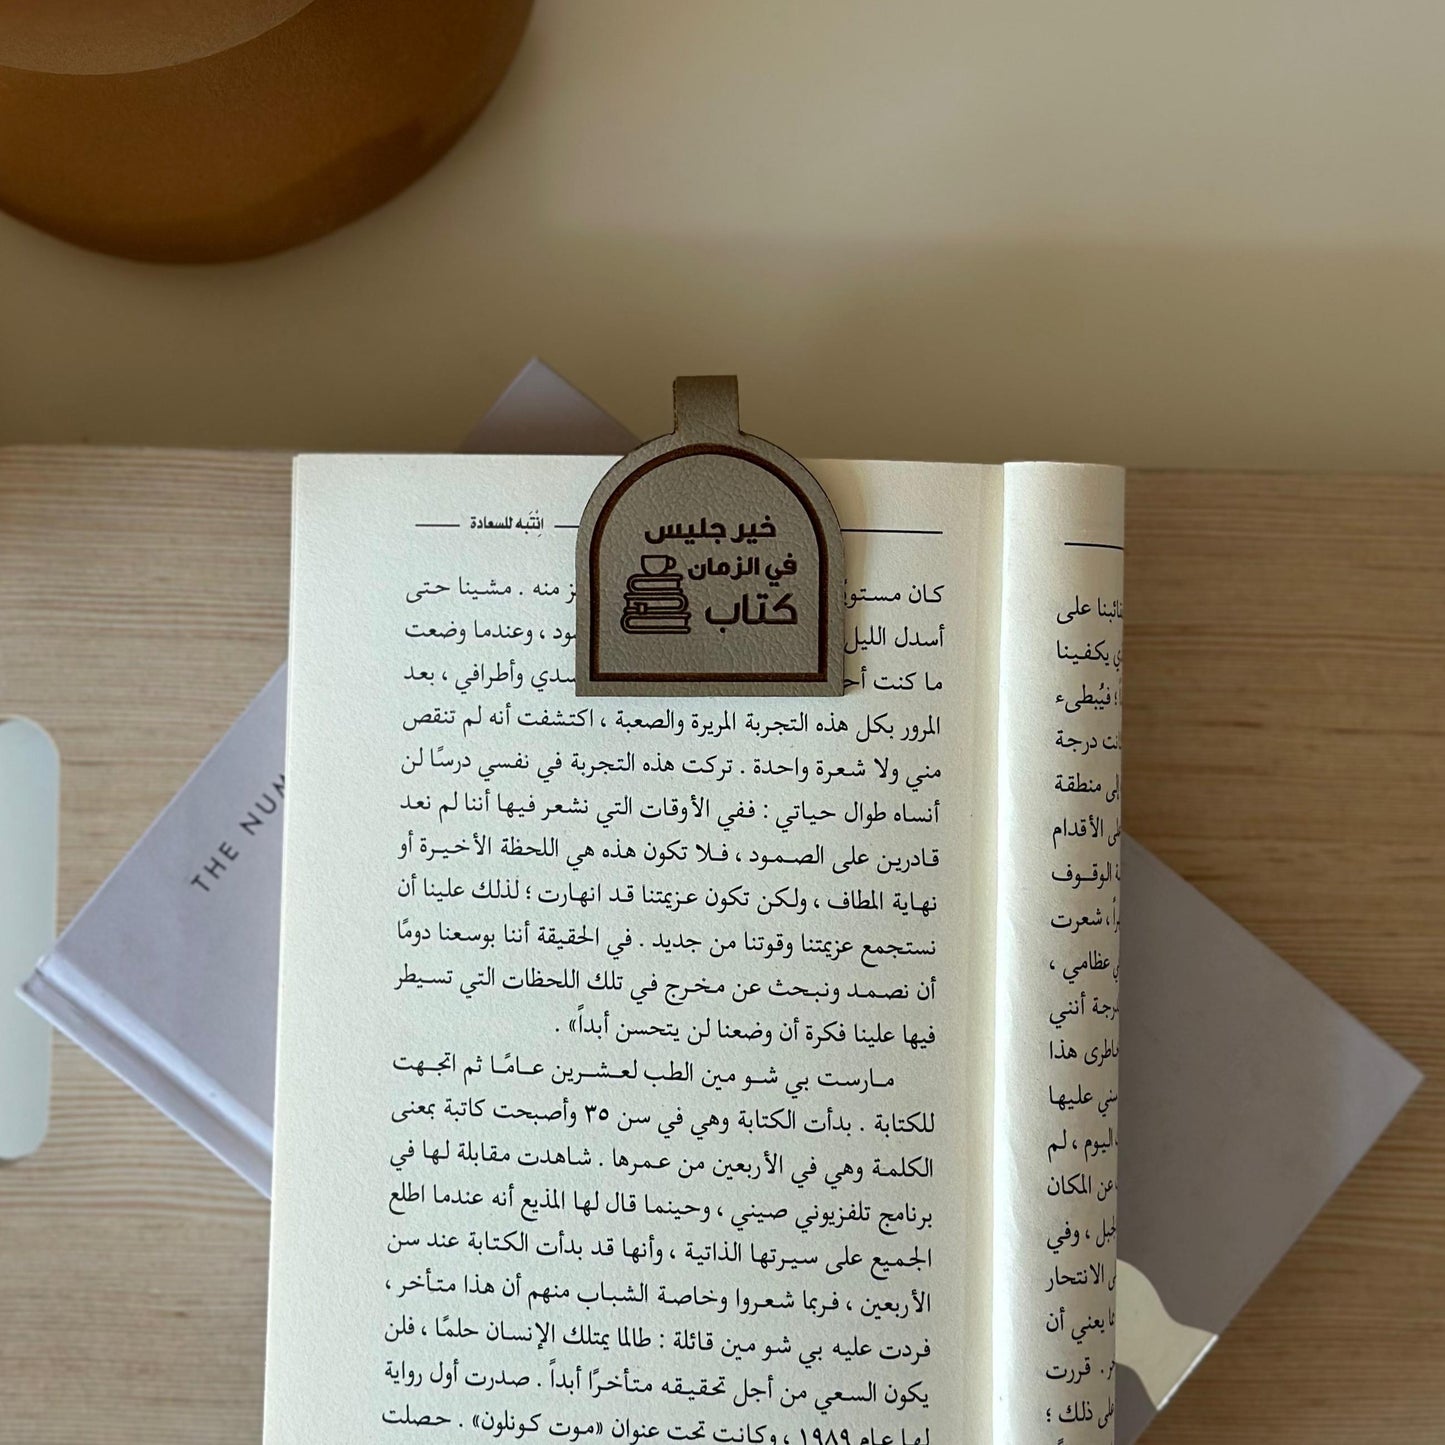 خير جليس
في الزمان
كتاب
انْتَبِه للسعادة
كان مستويً منه . مشينا حتى
أسدل الليل ، وعندما وضعت
ما كنت وأطرافي ، بعد
المرور بكل هذه التجربة المريرة والصعبة ، اكتشفت أنه لم تنقص
مني ولا شعرة واحدة . تركت هذه التجربة في نفسي درسًا لن
أنساه طوال حياتي : ففي الأوقات التي نشعر فيها أننا لم نعد
قادرين على الصمود ، فلا تكون هذه هي اللحظة الأخيرة أو
نهاية المطاف ، ولكن تكون عزيمتنا قد انهارت ؛ لذلك علينا أن
نستجمع عزيمتنا وقوتنا من جديد . في الحقيقة أننا بوسعنا دومًا
أن نصمد ونبحث عن مخرج في تلك اللحظات التي تسيطر
فيها علينا فكرة أن وضعنا لن يتحسن أبداً» .
مارست بي شو مين الطب لعشرين عامًا ثم اتجهت
للكتابة . بدأت الكتابة وهي في سن ٣٥ وأصبحت كاتبة بمعنى
الكلمة وهي في الأربعين من عمرها . شاهدت مقابلة لها في
برنامج تلفزيوني صيني ، وحينما قال لها المذيع أنه عندما اطلع
الجميع على سيرتها الذاتية ، وأنها قد بدأت الكتابة عند سن
الأربعين ، فربما شعروا وخاصة الشباب منهم أن هذا متأخر ،
فردت عليه بي شو مين قائلة : طالما يمتلك الإنسان حلمًا ، فلن
يكون السعي من أجل تحقيقه متأخرًا أبداً . صدرت أول رواية
لها عام ١٩٨٩ ، وكانت تحت عنوان «موت كونلون» . حصلت
على
يكفينا
؛ فيُبطىء
درجة
إلى منطقة
الأقدام
الوقوف
، شعرت
عظامي ،
أنني
هذا
عليها
اليوم ، لم
عن المكان
، وفي
الانتحار
يعني أن
. قررت
ذلك ؛
THE NUM